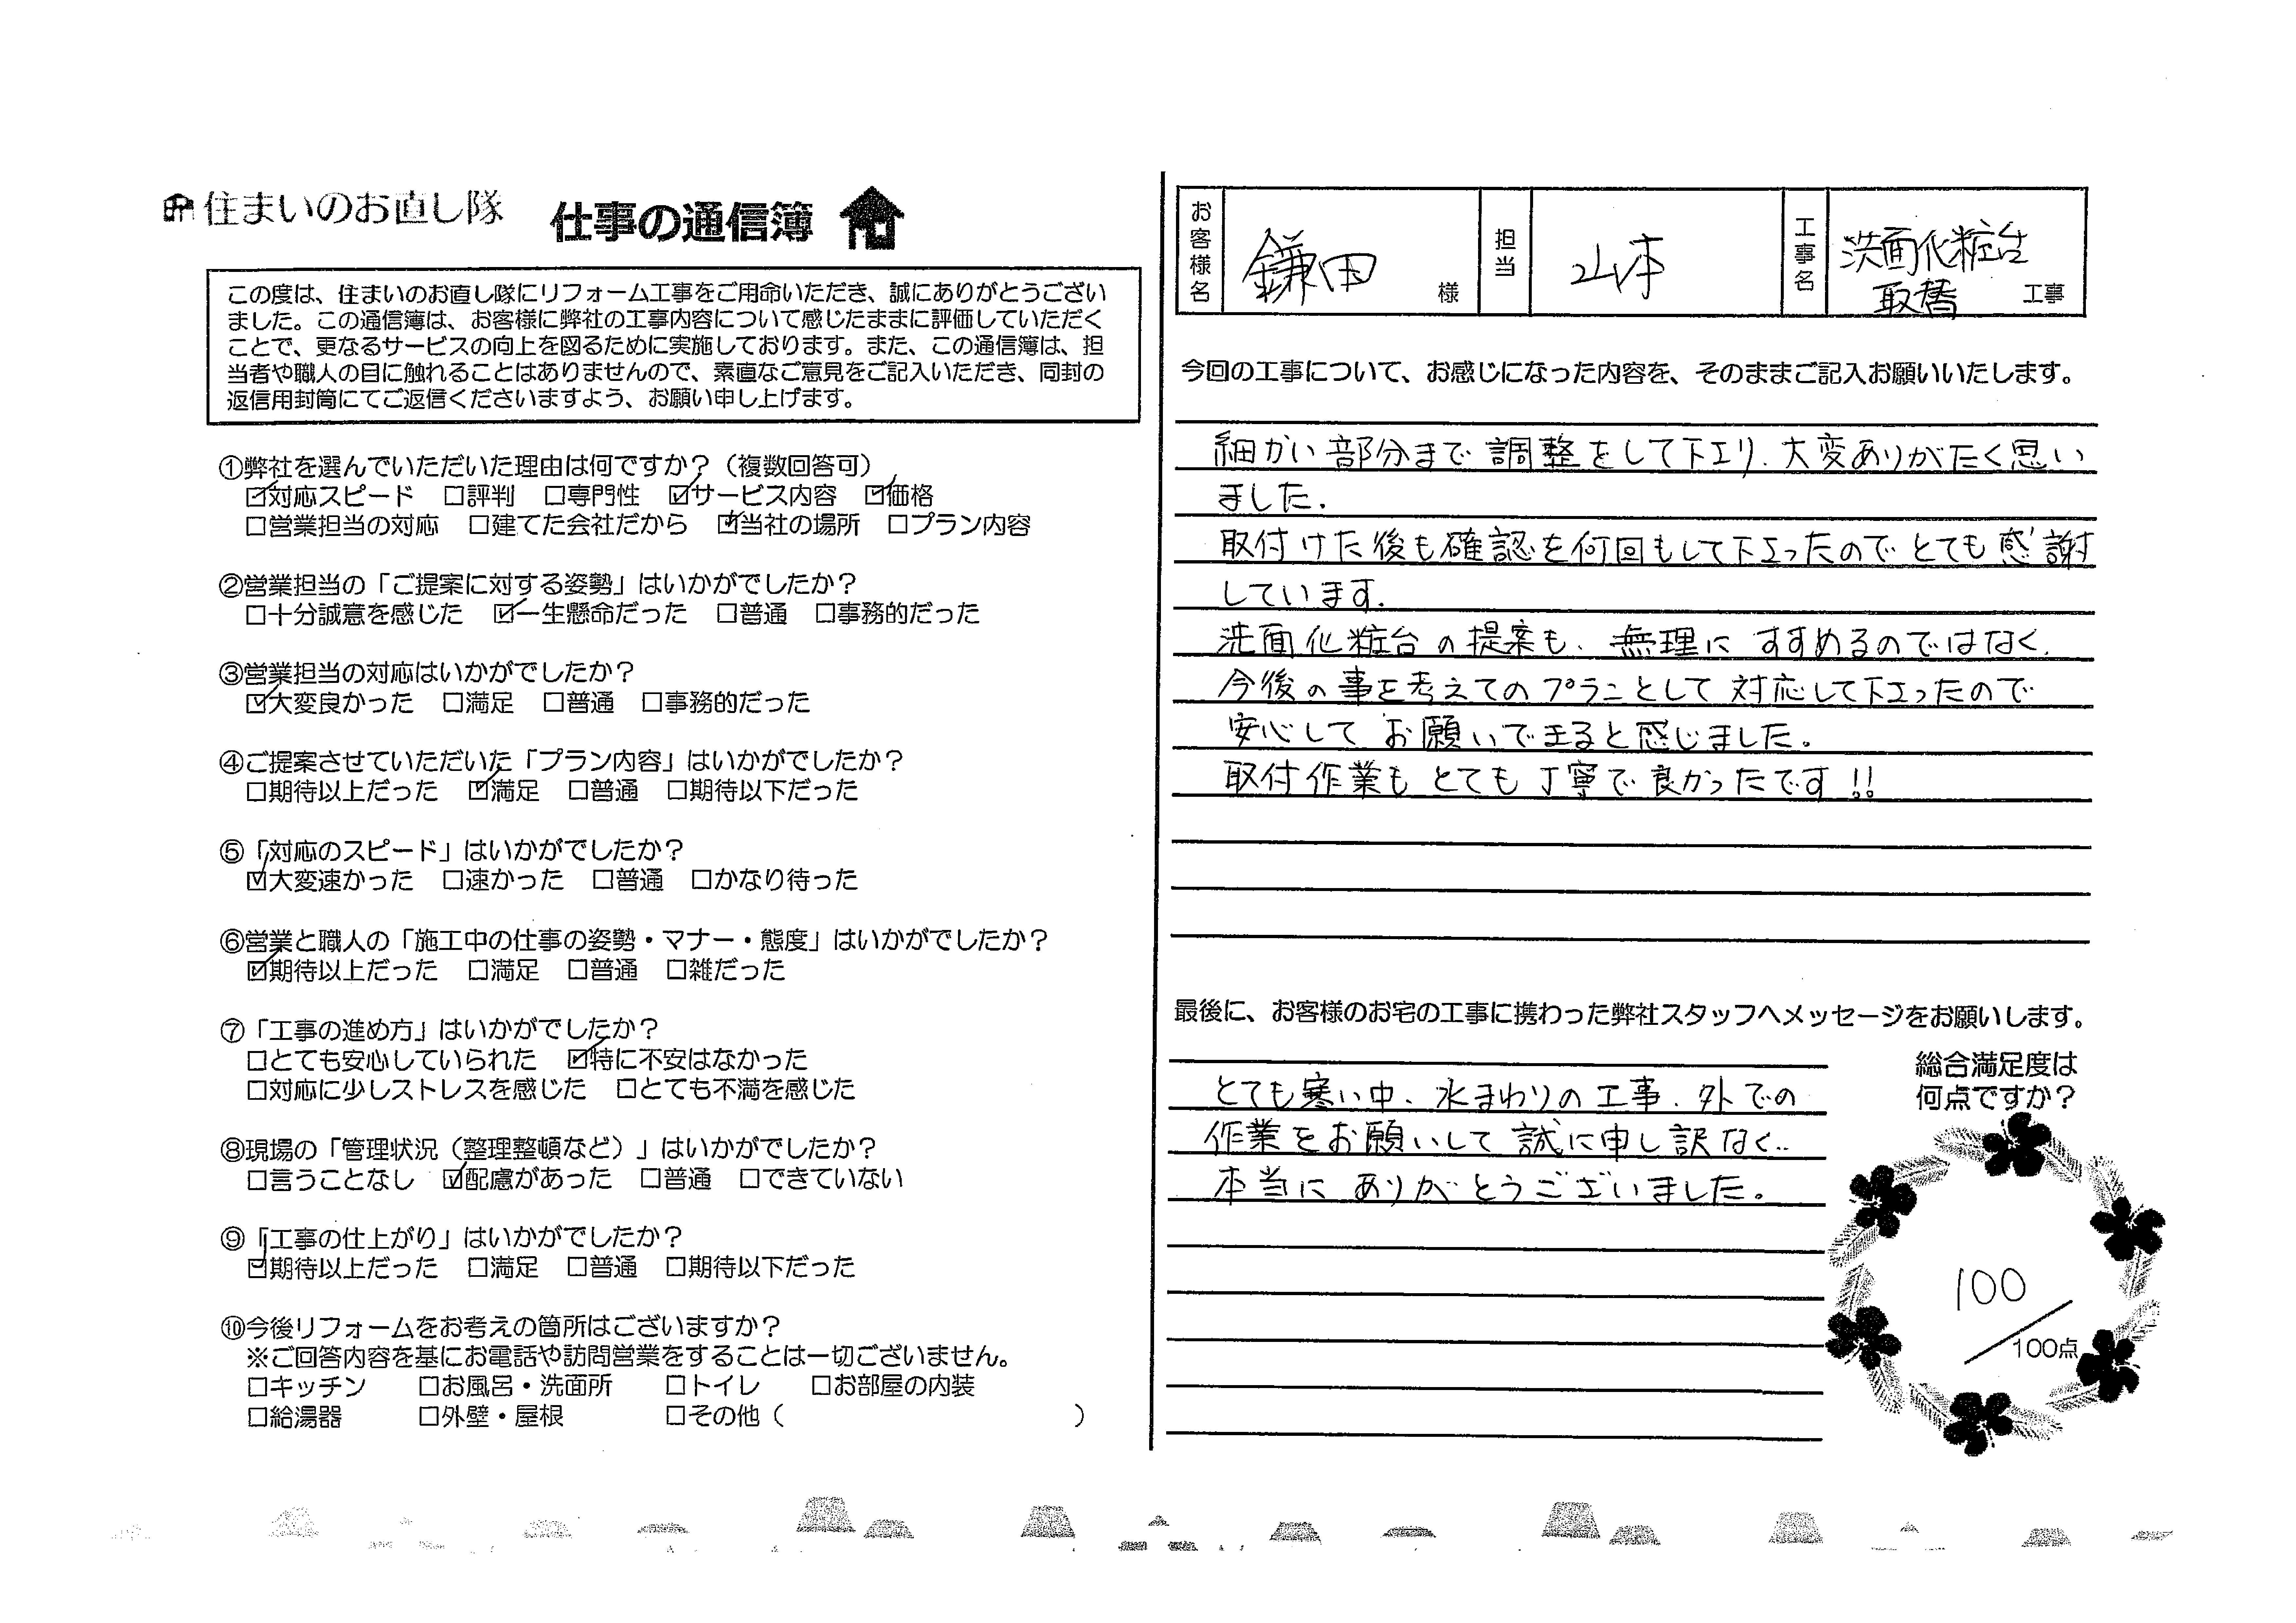 住まいのお直し隊
仕事の通信簿
この度は、住まいのお直し隊にリフォーム工事をご用命いただき、誠にありがとうござい
ました。この通信簿は、お客様に弊社の工事内容について感じたままに評価していただく
ことで、更なるサービスの向上を図るために実施しております。また、この通信簿は、担
当者や職人の目に触れることはありませんので、素直なご意見をご記入いただき、同封の
返信用封筒にてご返信くださいますよう、お願い申し上げます。
①弊社を選んでいただいた理由は何ですか？（複数回答可）
☑対応スピード ☐評判 ☐専門性 ☑サービス内容 ☑価格
☐営業担当の対応 ☐建てた会社だから ☑当社の場所 ☐プラン内容
②営業担当の「ご提案に対する姿勢」はいかがでしたか？
☐十分誠意を感じた ☑一生懸命だった ☐普通 ☐事務的だった
③営業担当の対応はいかがでしたか？
☑大変良かった ☐満足 ☐普通 ☐事務的だった
④ご提案させていただいた「プラン内容」はいかがでしたか？
☐期待以上だった ☑満足 ☐普通 ☐期待以下だった
⑤「対応のスピード」はいかがでしたか？
☑大変速かった ☐速かった ☐普通 ☐かなり待った
⑥営業と職人の「施工中の仕事の姿勢・マナー・態度」はいかがでしたか？
☑期待以上だった ☐満足 ☐普通 ☐雑だった
⑦「工事の進め方」はいかがでしたか？
☐とても安心していられた ☑特に不安はなかった
☐対応に少しストレスを感じた ☐とても不満を感じた
⑧現場の「管理状況（整理整頓など）」はいかがでしたか？
☐言うことなし ☑配慮があった ☐普通 ☐できていない
⑨「工事の仕上がり」はいかがでしたか？
☑期待以上だった ☐満足 ☐普通 ☐期待以下だった
⑩今後リフォームをお考えの箇所はございますか？
※ご回答内容を基にお電話や訪問営業をすることは一切ございません。
☐キッチン ☐お風呂・洗面所 ☐トイレ ☐お部屋の内装
☐給湯器 ☐外壁・屋根 ☐その他（ ）
お客様名 鎌田 様 担当 山本 工事名 洗面化粧台
取替 工事
今回の工事について、お感じになった内容を、そのままご記入お願いいたします。
細かい部分まで調整をして下エリ、大変ありがたく思い
ました.
取付けた後も確認を何回もして下エったのでとても感謝
しています.
洗面化粧台の提案も、無理にすすめるのではなく、
今後の事を考えてのプランとして対応して下エったので
安心してお願いできると感じました。
取付作業もとても丁寧で良かったです!!
最後に、お客様のお宅の工事に携わった弊社スタッフへメッセージをお願いします。
とても寒い中、水まわりの工事、外での
作業をお願いして誠に申し訳なく..
本当にありがとうございました。
総合満足度は
何点ですか？
100
100点